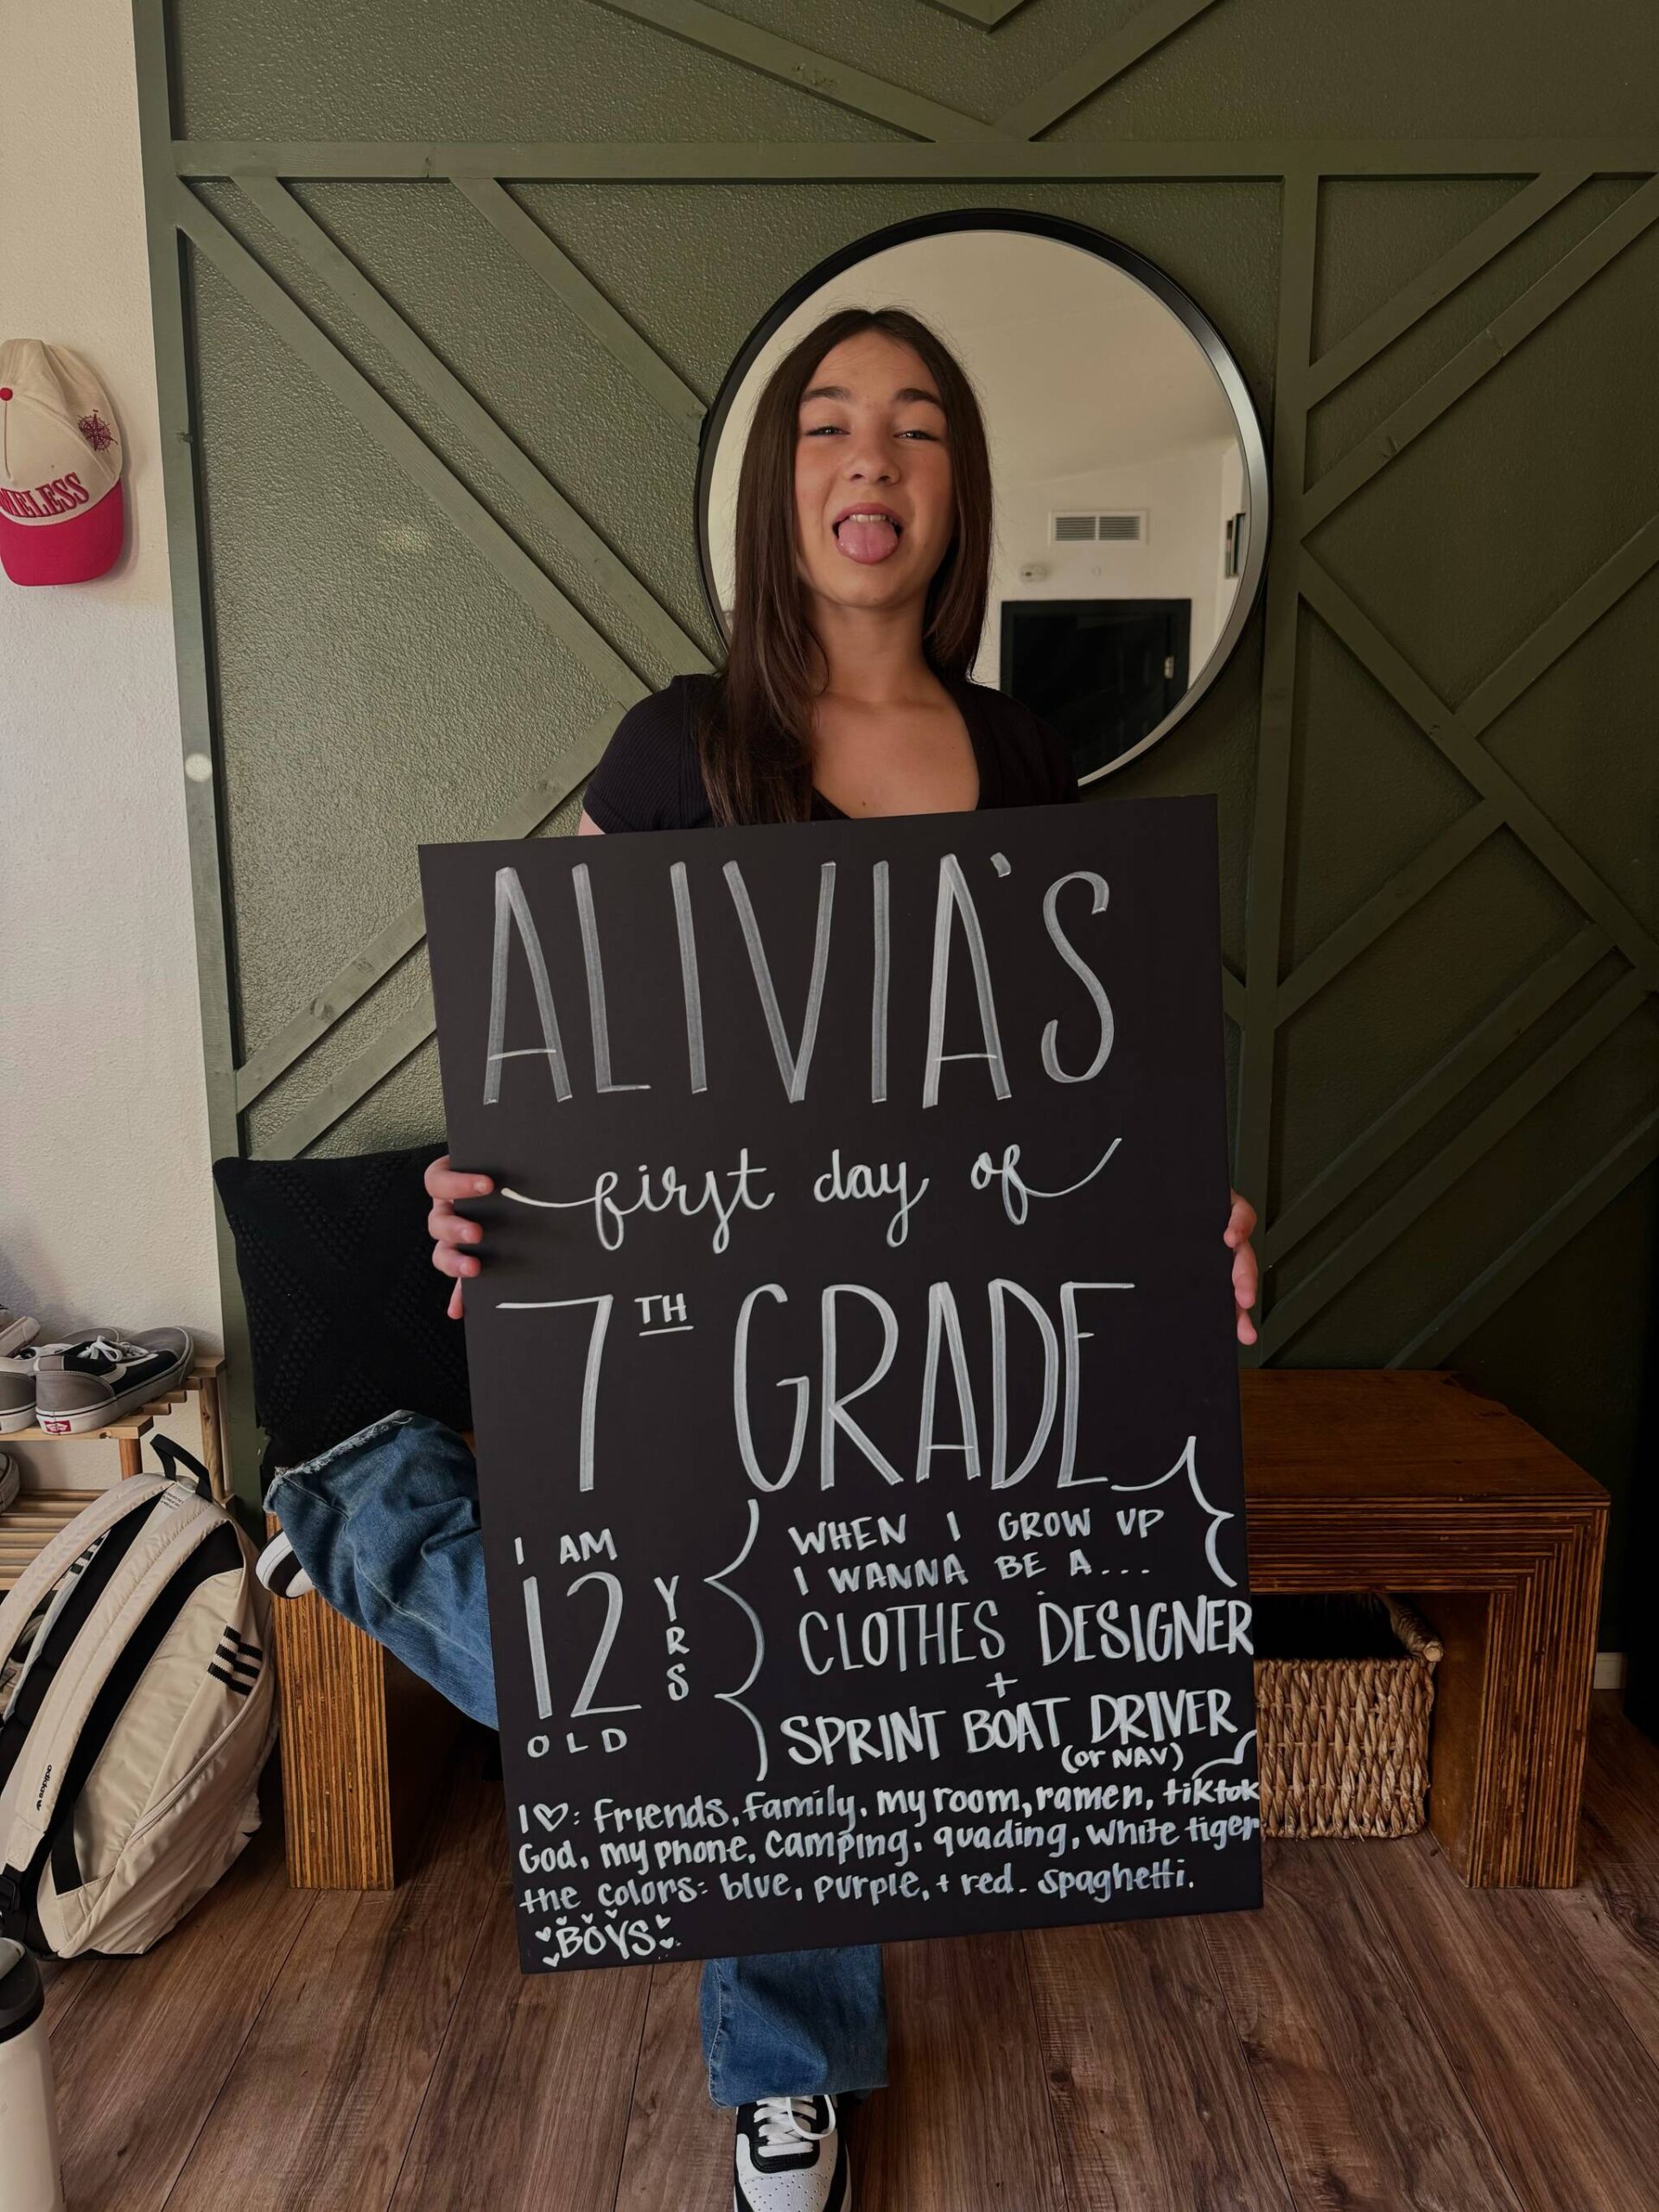 ALIVIA'S
first day of
7TH GRADE
I AM
12 YRS
OLD
WHEN I GROW UP
I WANNA BE A...
CLOTHES DESIGNER
+
SPRINT BOAT DRIVER
(or NAV)
I ♡: friends, family, my room, ramen, tiktok
God, my phone, camping, quading, white tiger
the colors: blue, purple, + red. spaghetti.
BOYS
MELESS
adidas